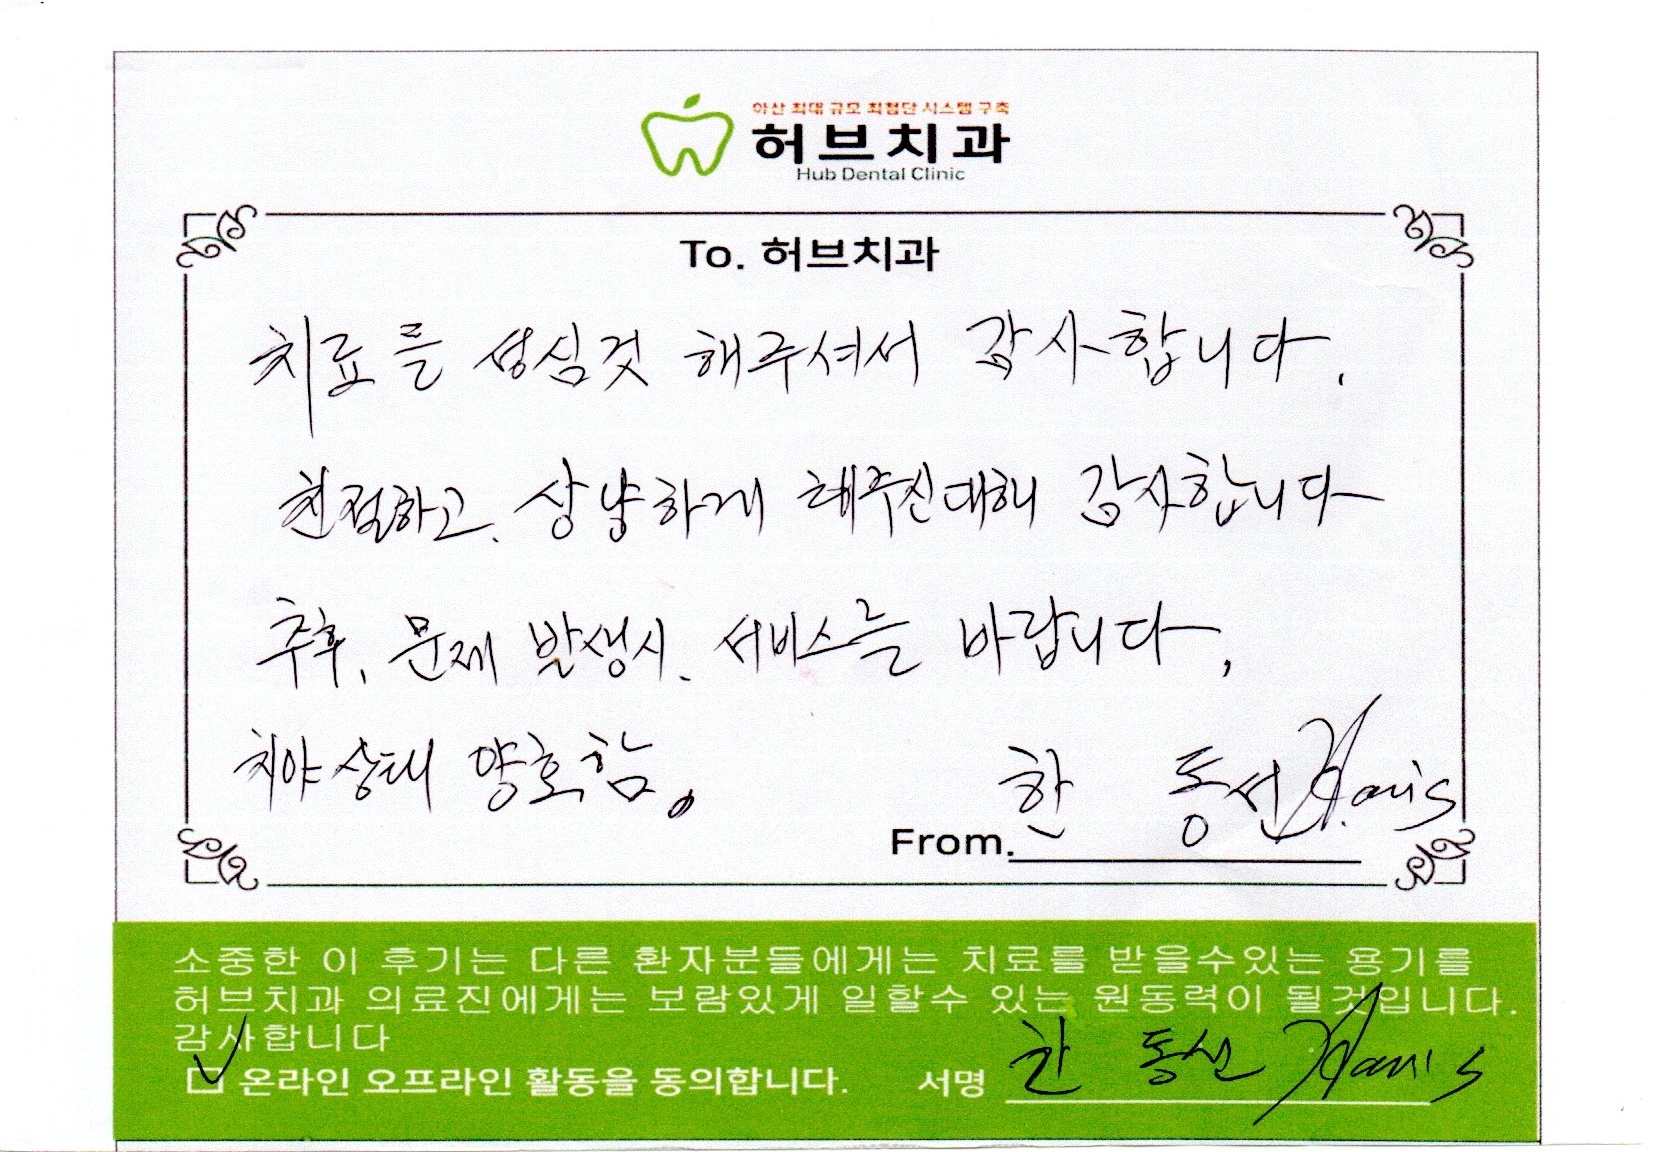 아산 최대 규모 최첨단 시스템 구축
허브치과
Hub Dental Clinic
To. 허브치과
치료를 성심것 해주셔서 감사합니다.
친절하고, 상냥하게 해주신대해 감사합니다
추후, 문제 발생시, 서비스를 바랍니다,
치야상태 양호함。
From. 한 동선
소중한 이 후기는 다른 환자분들에게는 치료를 받을수있는 용기를
허브치과 의료진에게는 보람있게 일할수 있는 원동력이 될것입니다.
감사합니다
온라인 오프라인 활동을 동의합니다. 서명 한 동선